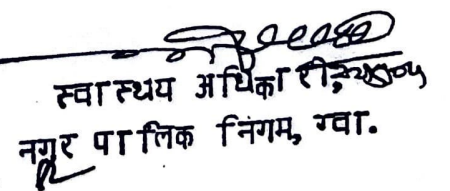 स्वास्थय अधिकारी,
नगर पालिक निगम, ग्वा.